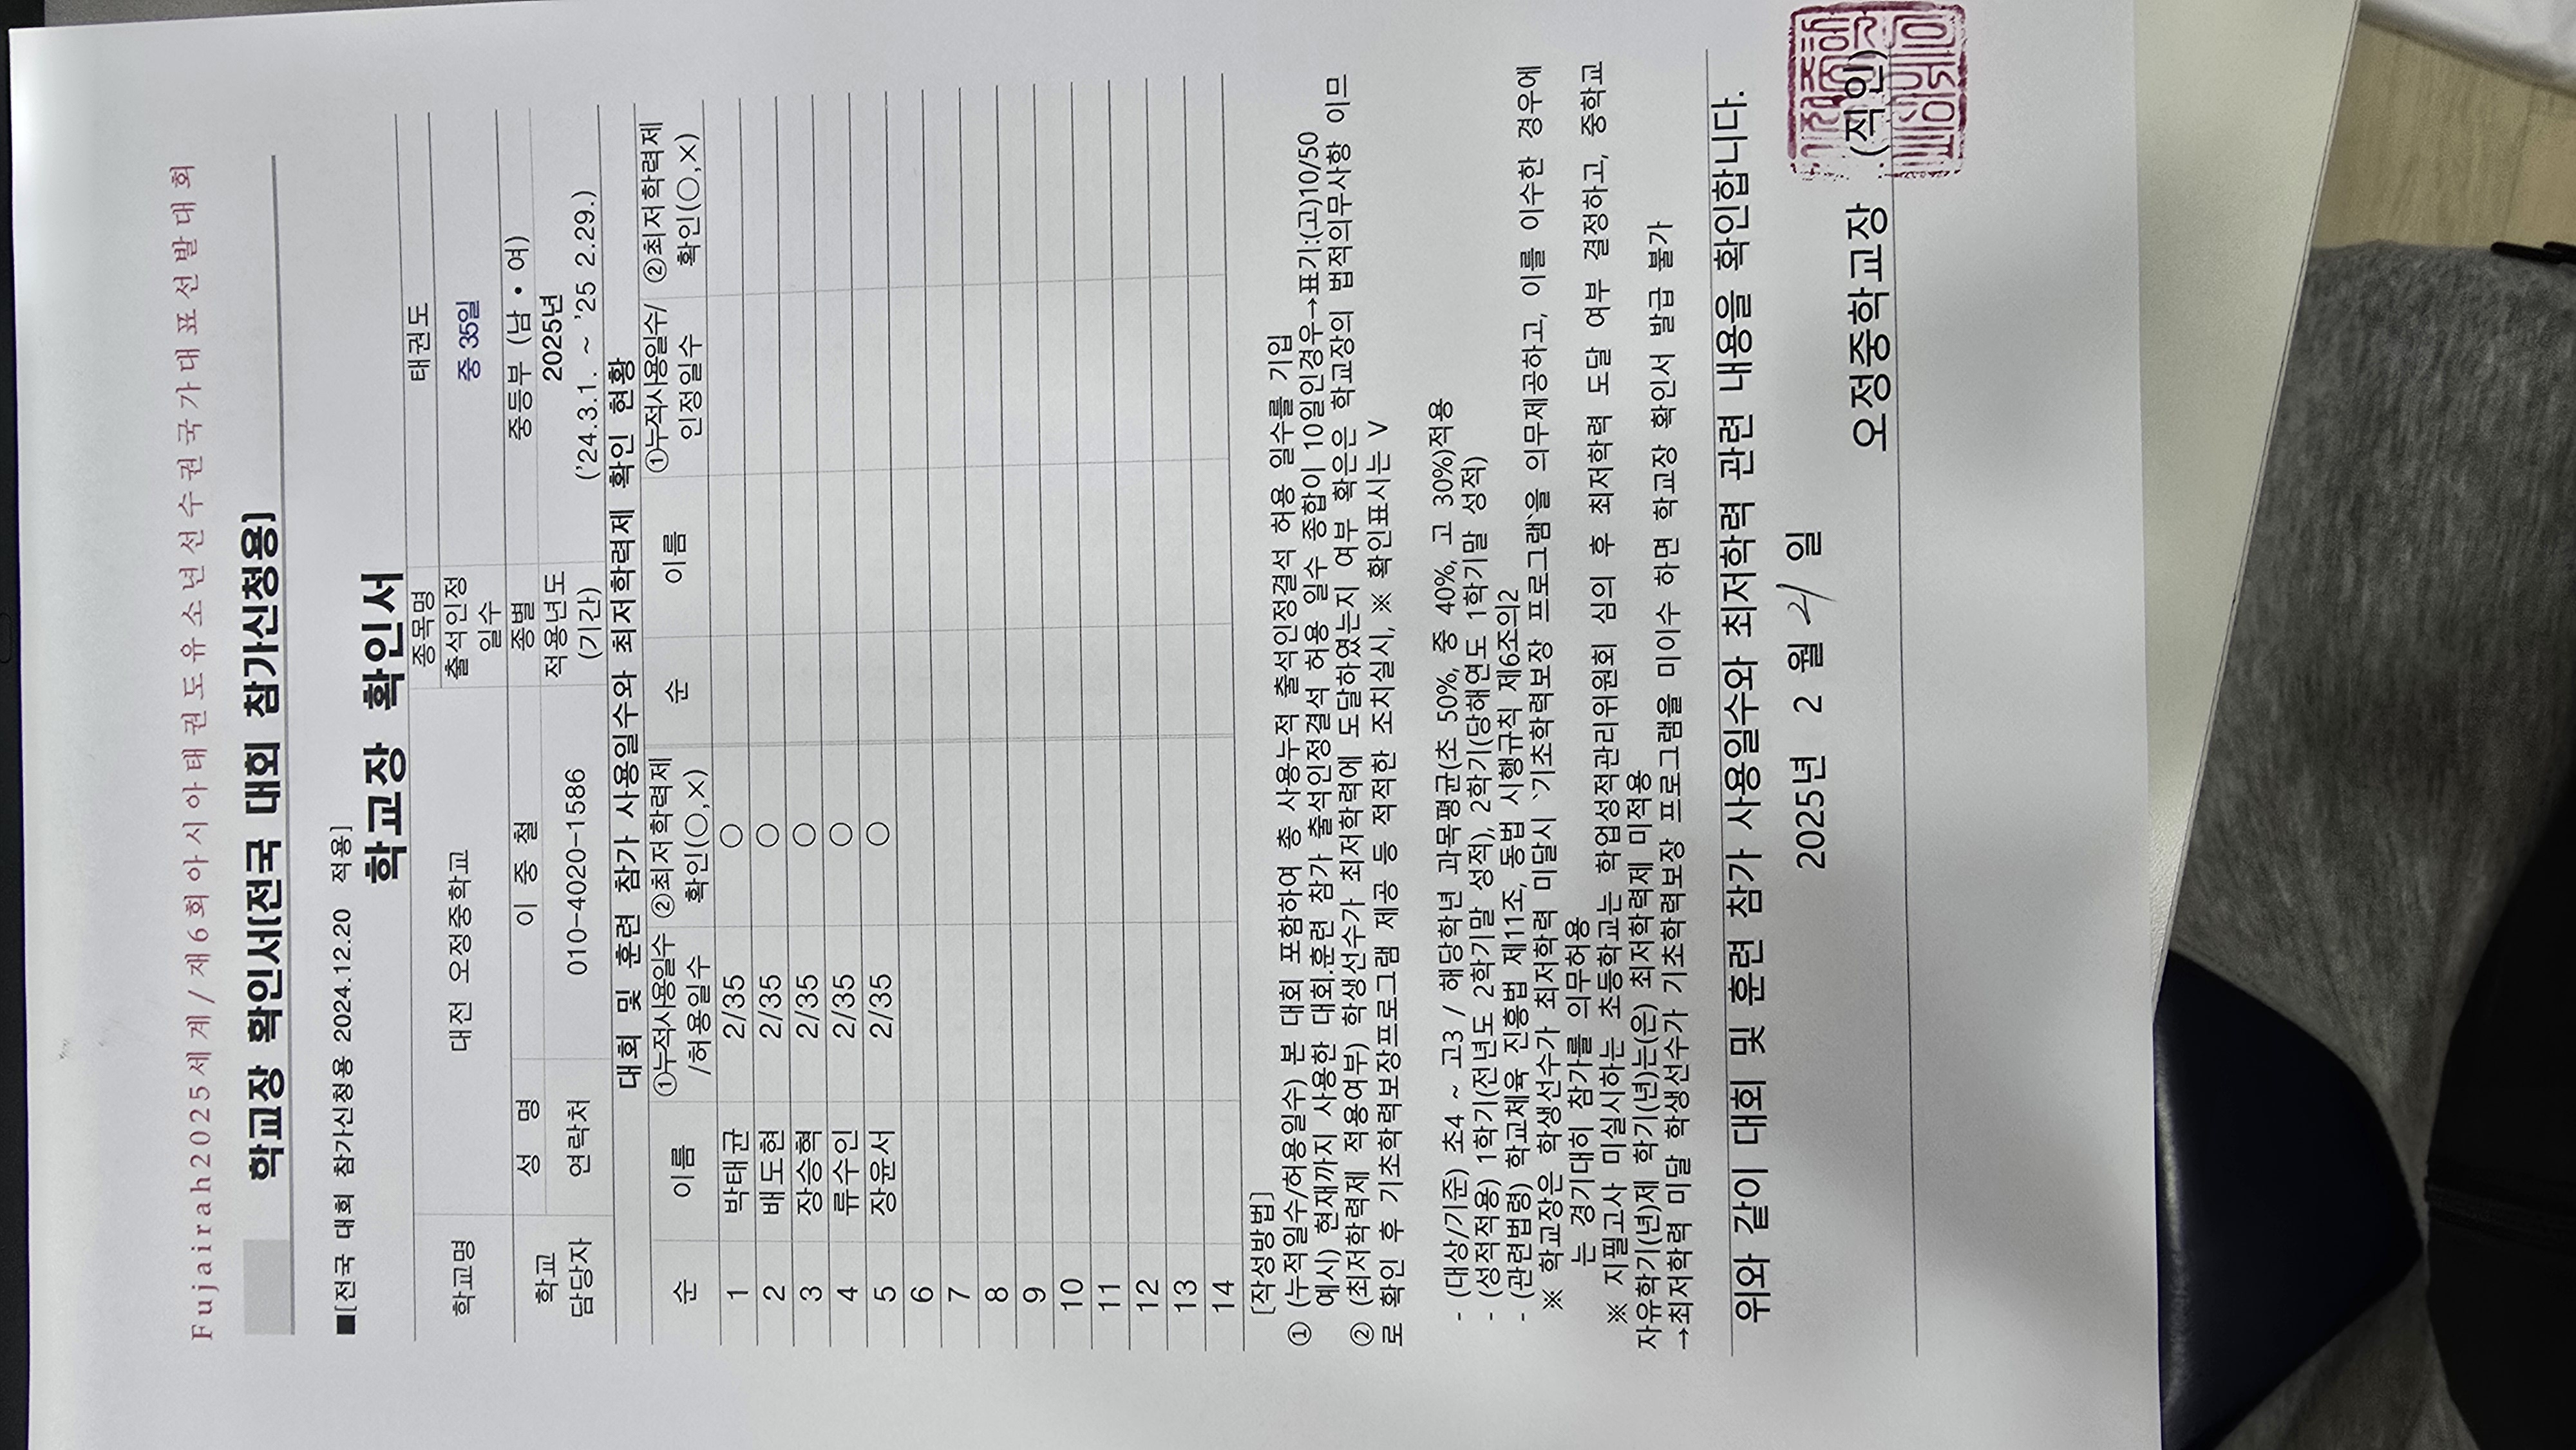 Fujairah2025세계/제6회아시아태권도유소년선수권국가대표선발대회
학교장 확인서[전국 대회 참가신청용]
■[전국 대회 참가신청용 2024.12.20 적용]
학교장 확인서
학교명 대전 오정중학교 종목명 태권도
출석인정 일수 중 35일
학교 담당자 성 명 이 중 철 종별 중등부 (남·여)
연락처 010-4020-1586 적용년도 (기간) 2025년 ('24.3.1. ~ '25 2.29.)
대회 및 훈련 참가 사용일수와 최저학력제 확인 현황
순 이름 ①누적사용일수 /허용일수 ②최저학력제 확인(○,×) 순 이름 ①누적사용일수/ 인정일수 ②최저학력제 확인(○,×)
1 박태균 2/35 ○
2 배도현 2/35 ○
3 장승혁 2/35 ○
4 류수인 2/35 ○
5 장윤서 2/35 ○
6
7
8
9
10
11
12
13
14
[작성방법]
① (누적일수/허용일수) 본 대회 포함하여 총 사용누적 출석인정결석 허용 일수를 기입
예시) 현재까지 사용한 대회.훈련 참가 출석인정결석 허용 일수 종합이 10일인경우→표기:(고)10/50
② (최저학력제 적용여부) 학생선수가 최저학력에 도달하였는지 여부 확은은 학교장의 법적의무사항 이므
로 확인 후 기초학력보장프로그램 제공 등 적적한 조치실시, ※ 확인표시는 V
- (대상/기준) 초4 ~ 고3 / 해당학년 과목평균(초 50%, 중 40%, 고 30%)적용
- (성적적용) 1학기(전년도 2학기말 성적), 2학기(당해연도 1학기말 성적)
- (관련법령) 학교체육 진흥법 제11조, 동법 시행규칙 제6조의2
※ 학교장은 학생선수가 최저학력 미달시 '기초학력보장 프로그램'을 의무제공하고, 이를 이수한 경우에
는 경기대회 참가를 의무허용
※ 지필고사 미실시하는 초등학교는 학업성적관리위원회 심의 후 최저학력 도달 여부 결정하고, 중학교
자유학기(년)제 학기(년)는(은) 최저학력제 미적용
→최저학력 미달 학생선수가 기초학력보장 프로그램을 미이수 하면 학교장 확인서 발급 불가
위와 같이 대회 및 훈련 참가 사용일수와 최저학력 관련 내용을 확인합니다.
2025년 2 월 21 일
오정중학교장 (직인)